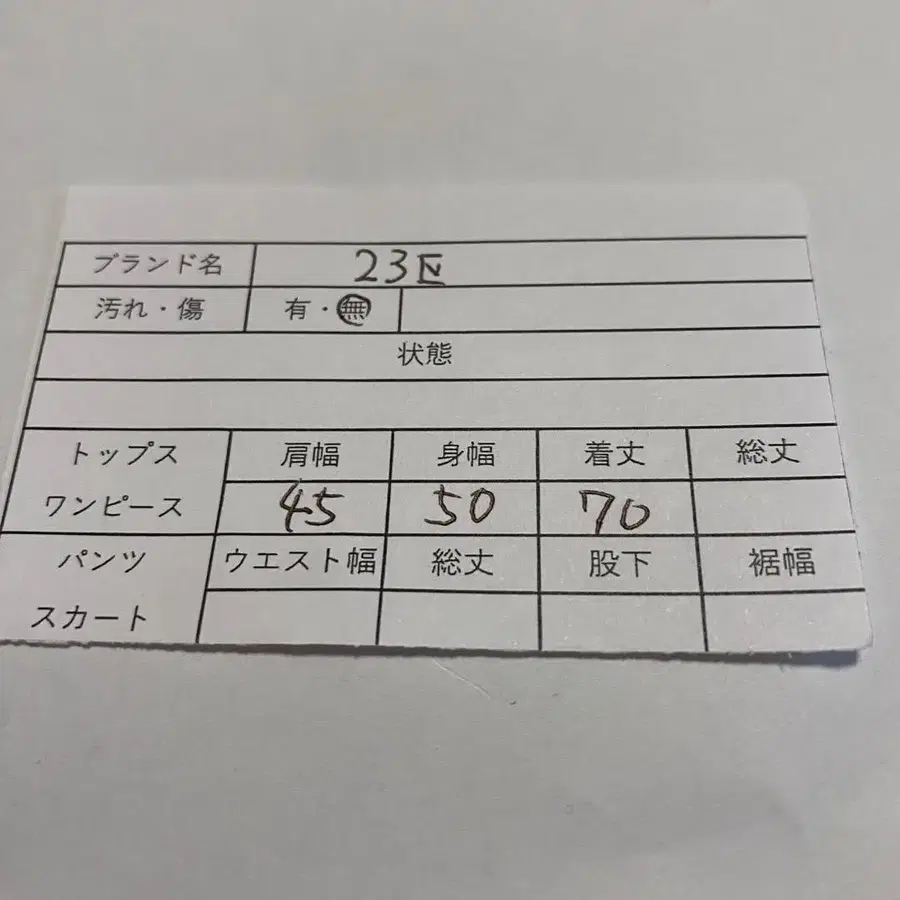 ブランド名 23区
汚れ・傷 有・無
状態
トップス 肩幅 身幅 着丈 総丈
ワンピース 45 50 70
パンツ ウエスト幅 総丈 股下 裾幅
スカート